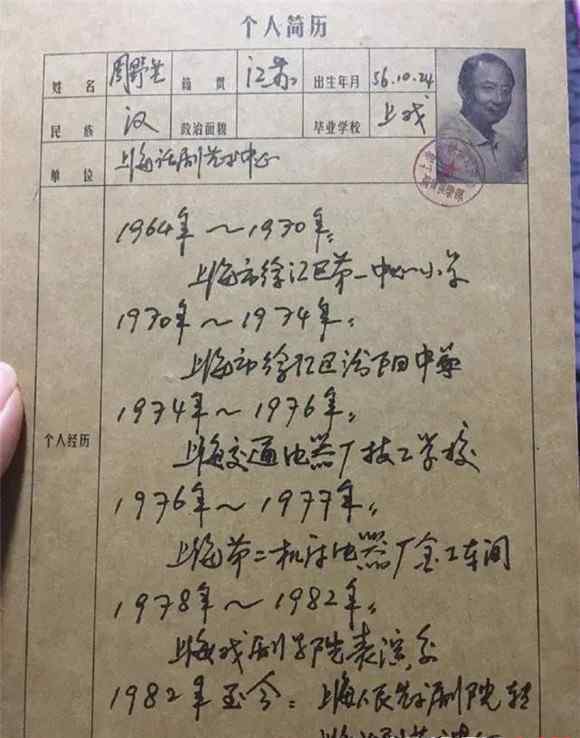 个人简历
姓 名 周野芒 籍 贯 江苏 出生年月 56.10.24
民 族 汉 政治面貌 毕业学校 上戏
单 位 上海话剧艺术中心
个人经历
1964年～1970年:
上海市徐汇区第一中心小学
1970年～1974年:
上海市徐汇区汾阳中学
1974年～1976年:
上海交通电器厂技工学校
1976年～1977年:
上海第二机床电器厂金工车间
1978年～1982年:
上海戏剧学院表演系
1982年至今: 上海人民艺术剧院转